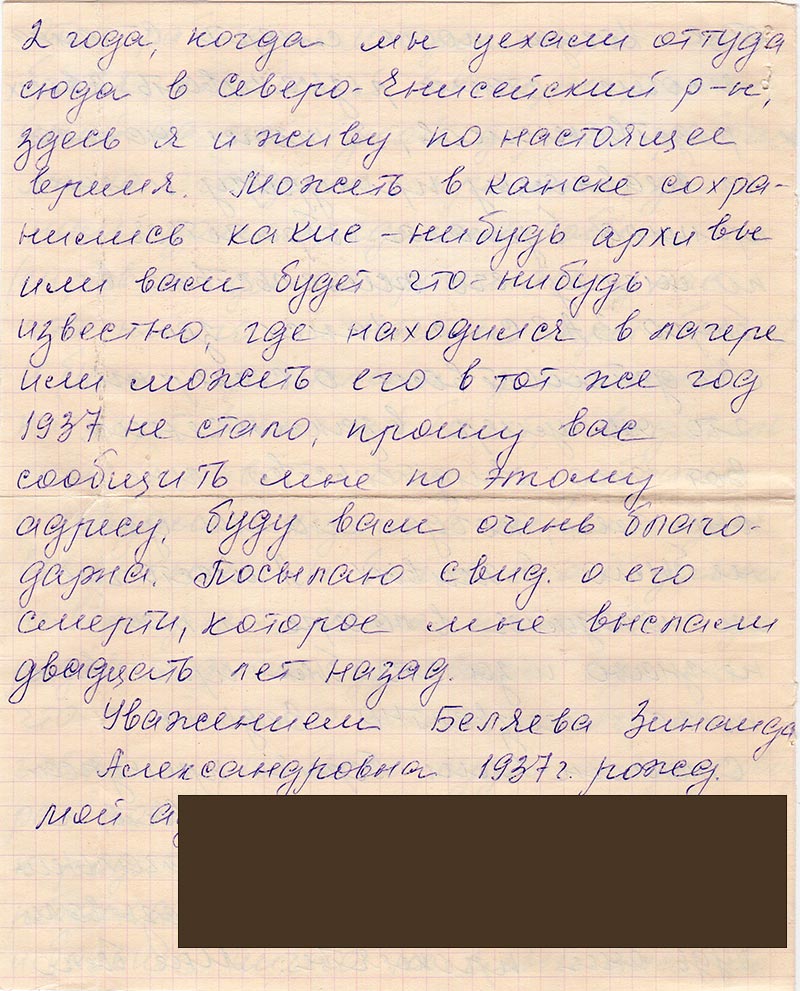 2 года, когда мы уехали оттуда
сюда в Северо-Енисейский р-н,
здесь я и живу по настоящее
время. Можеть в канске сохра-
нились какие-нибудь архивы
или вам будет что-нибудь
известно, где находился в лагере
или можеть его в тот же год
1937 не стало, прошу вас
сообщить мне по этому
адресу. буду вам очень благо-
дарна. Посылаю свид. о его
смерти, которое мне выслали
двадцать лет назад.
Уважением Беляева Зинаида
Александровна 1937 г. рожд.
мой